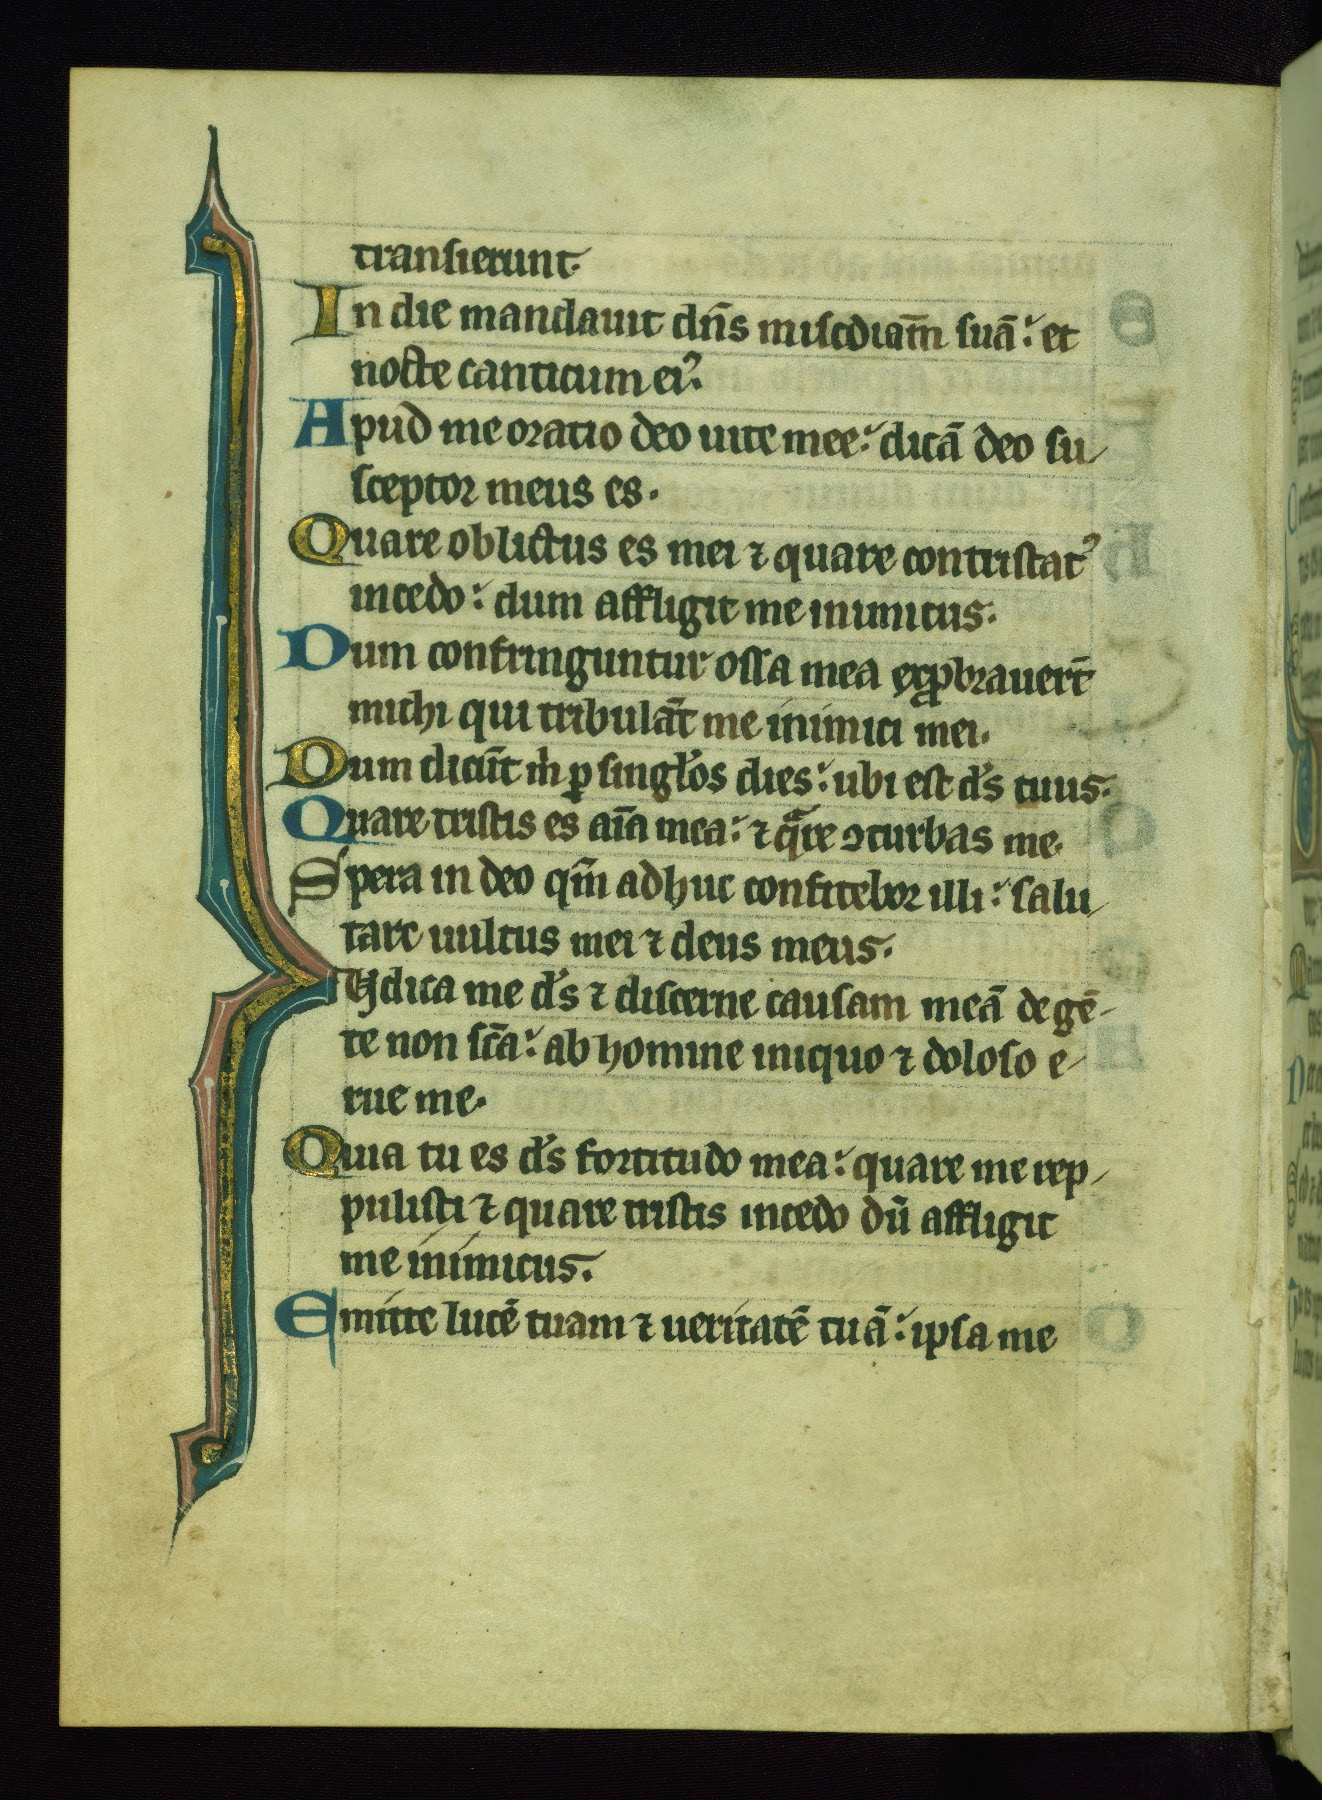 transierunt.
In die mandauit dn̄s misc̄diam̄ suā: et
nocte canticum eiꝰ.
Apud me oratio deo uite mee: dicā deo su/
sceptor meus es.
Quare oblictus es mei ⁊ quare contristatꝰ
incedo: dum affligit me inimicus.
Dum confringuntur ossa mea exꝓbrauer̄t
michi qui tribulāt me inimici mei.
Dum dicūt m̄ ꝑ singl̄os dies: ubi est d̄s tuus.
Quare tristis es aīa mea: ⁊ qͣre ꝯturbas me.
Spera in deo qm̄ adhuc confitebor illi: salu/
tare uultus mei ⁊ deus meus.
Iudica me d̄s ⁊ discerne causam meā de gē-
te non sc̄a: ab homine iniquo ⁊ doloso e/
rue me.
Quia tu es d̄s fortitudo mea: quare me rep/
pulisti ⁊ quare tristis incedo dū affligit
me inimicus.
Emitte lucē tuam ⁊ ueritatē tuā: ipsa me